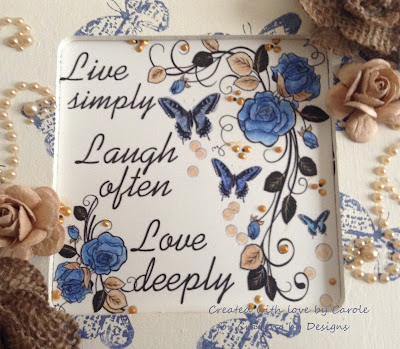 Live
simply
Laugh
often
Love
deeply
Created with love by Carole
Designs